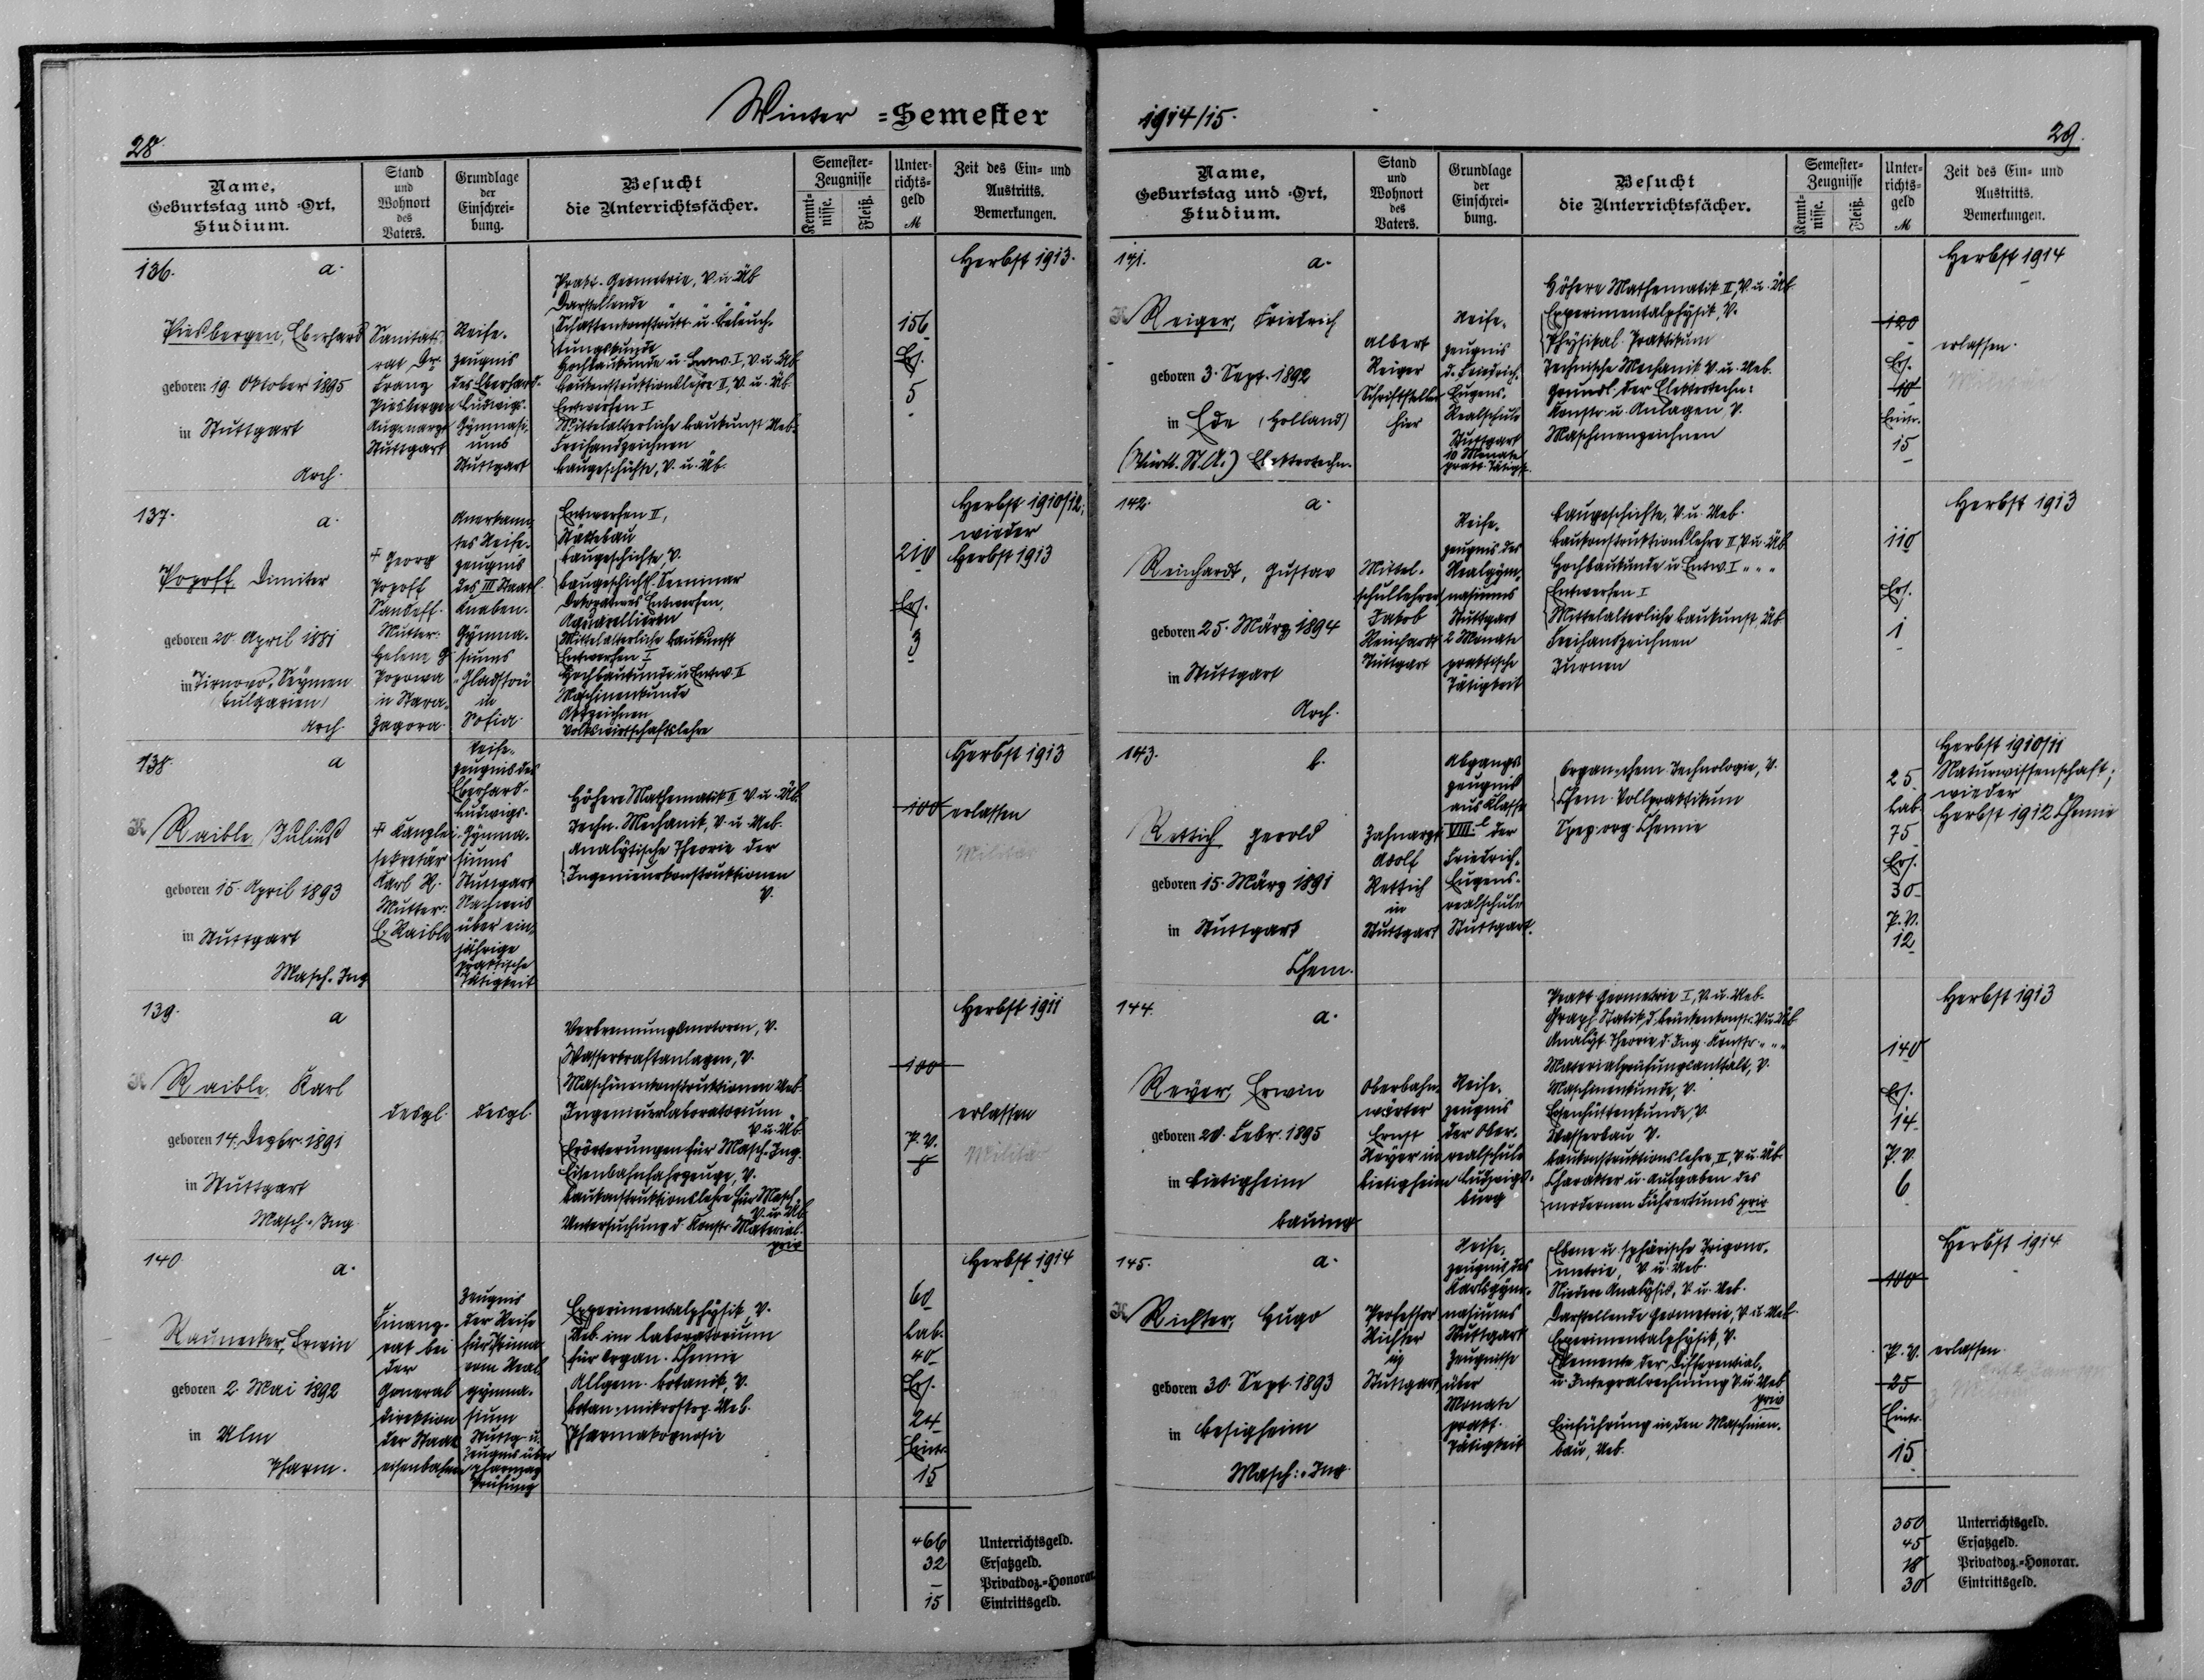 Winter =Semester
28.
Name, Geburtstag und =Ort, Studium.
Stand und Wohnort des Vaters.
Grundlage der Einschrei- bung.
Besucht die Unterrichtsfächer.
Semester- Zeugnisse
Kennt- nisse.
Fleiß.
Unter- richts- geld M
Zeit des Ein- und Austritts. Bemerkungen.
136.
a.
Herbst 1913.
Piesbergen, Eberhard
geboren 19. Oktober 1895
in Stuttgart
Arch.
Sanitäts-
rat Dr.
Franz
Piesbergen
Augenarzt
Stuttgart
Reife-
zeugnis
des Eberhard-
Ludwigs-
Gymnasi-
ums
Stuttgart
Prakt. Geometrie, V. u. Üb
Darstellende " " "
Schattenkonstrukt. u. Beleuch-
tungskunde
Hochbaukunde u. Entw. I, V. u. Üb
Baukonstruktionslehre II, V. u. Üb.
Entwerfen I
Mittelalterliche Baukunst Ueb.
Freihandzeichnen
Baugeschichte, V. u. Üb.
156
Ers.
5
137.
a.
Herbst 1910/12;
wieder
Herbst 1913
Popoff Dimiter
geboren 20. April 1881
in Tirnovo, Seymen
(Bulgarien)
Arch.
† Georg
Popoff
Mutter:
Helene G.
Popowa
in Stara-
Zagora.
Anerkann-
tes Reife-
zeugnis
des III Staatl.
Knaben-
Gymna-
siums
"Gladston"
in
Sofia.
Entwerfen II,
Städtebau
Baugeschichte, V.
Baugeschichtl. Seminar
Dekoratives Entwerfen,
Aquarellieren
Mittelalterliche Baukunst
Entwerfen I
Hochbaukunde u. Entw. II
Maschinenkunde
Aktzeichnen
Volkswirtschaftslehre
210
Ers.
3
138.
a
Herbst 1913
K Raible, Julius
geboren 15. April 1893
in Stuttgart
Masch. Ing
† Kanzlei-
sekretär
Karl R.
Mutter:
E. Raible
Reife-
zeugnis des
Eberhard-
Ludwigs-
Gymna-
siums
Stuttgart
Nachweis
über ein-
jährige
praktische
Tätigkeit
Höhere Mathematik II V. u. Üb.
Techn. Mechanik, V. u. Ueb.
Analytische Theorie der
Ingenieurkonstruktionen
V.
100
erlassen
Militär
139.
a
Herbst 1911
K Raible, Karl
geboren 14. Dezbr. 1891
in Stuttgart
Masch.-Ing.
desgl.
desgl.
Verbrennungsmotoren, V.
Wasserkraftanlagen, V.
Maschinenkonstruktionen Ueb.
Ingenieurlaboratorium
V. u. Üb.
Erörterungen für Masch.-Ing.
Eisenbahnfahrzeuge, V.
Baukonstruktionslehre für Masch.
V. u. Üb.
Untersuchung d. Konstr. Material.
priv
100
P. V.
8
erlassen
Militär
140.
a.
Herbst 1914
Raunecker, Erwin
geboren 2. Mai 1892
in Ulm
Pharm.
Finanz-
rat bei
der
General
direktion
der Staats
eisenbahnen
Zeugnis
der Reife
für Prima
vom Real-
gymna-
sium
Stuttg. u.
Zeugnis über
pharmaz.
Prüfung
Experimentalphysik, V.
Ueb. im Laboratorium
für organ. Chemie
Allgem. Botanik, V.
Botan.-mikroskop. Ueb.
Pharmakognosie
60
Lab.
40
Ers.
24
Eintr.
15
466 Unterrichtsgeld.
32 Ersatzgeld.
– Privatdoz.=Honorar.
15 Eintrittsgeld.
1914/15.
29.
Name, Geburtstag und =Ort, Studium.
Stand und Wohnort des Vaters.
Grundlage der Einschrei- bung.
Besucht die Unterrichtsfächer.
Semester- Zeugnisse
Kennt- nisse.
Fleiß.
Unter- richts- geld M
Zeit des Ein- und Austritts. Bemerkungen.
141.
a.
Herbst 1914
K Reiger, Friedrich
geboren 3. Sept. 1892
in Ede (Holland)
(Württ. St. A.) Elektrotechn.
Albert
Reiger
Schriftsteller
hier
Reife-
zeugnis
d. Friedrich-
Eugens-
Realschule
Stuttgart
10 Monate
prakt. Tätigk.
Höhere Mathematik II, V. u. Üb.
Experimentalphysik, V.
Physikal. Praktikum
Technische Mechanik V. u. Ueb.
Grundl. der Elektrotechn:
Konstr. u. Anlagen, V.
Maschinenzeichnen
120
Ers.
10
Eintr.
15
erlassen.
142.
a.
Herbst 1913
Reinhardt, Gustav
geboren 25. März 1894
in Stuttgart
Arch.
Mittel-
schullehrer
Jakob
Reinhardt
Stuttgart
Reife-
zeugnis des
Realgym-
nasiums
Stuttgart
2 Monate
praktische
Tätigkeit
Baugeschichte, V. u. Ueb.
Baukonstruktionslehre II, V. u. Üb
Hochbaukunde u. Entw. I " " "
Entwerfen I
Mittelalterliche Baukunst, Üb
Freihandzeichnen
Turnen
110
Ers.
1
143.
b.
Herbst 1910/11
Naturwissenschaft;
wieder
Herbst 1912 Chemie
Rettich Gerold
geboren 15. März 1891
in Stuttgart
Chem.
Zahnarzt
Adolf
Rettich
in
Stuttgart
Abgangs-
zeugnis
aus Klasse
VIII. b der
Friedrich-
Eugens-
realschule
Stuttgart.
Organ.-chem. Technologie, V.
Chem. Vollpraktikum
Spez. org. Chemie
25
Lab.
75
Ers.
30
P. V.
12
144.
a.
Herbst 1913
Reyer, Erwin
geboren 20. Febr. 1895
in Bietigheim
Bauing
Oberbahn-
wärter
Ernst
Reyer in
Bietigheim
Reife-
zeugnis
der Ober-
realschule
Ludwigs-
burg
Prakt. Geometrie I, V. u. Ueb.
Graph. Statik, d. Brückenkonstr. V. u. Üb
Analyt. Theorie d. Ing. Konstr. " " "
Materialprüfungsanstalt, V.
Maschinenkunde, V.
Eisenhüttenkunde, V.
Wasserbau V.
Baukonstruktionslehre, II, V. u. Üb.
Charakter u. Aufgaben des
modernen Führertums priv
140
Ers.
14
P. V.
6
145.
a.
Herbst 1914
K Richter, Hugo
geboren 30. Sept. 1893
in Besigheim
Masch.-Ing.
Professor
Richter
in
Stuttgart
Reife-
zeugnis des
Karlsgym-
nasiums
Stuttgart
Zeugnisse
über
Monate
prakt.
Tätigkeit
Ebene u. sphärische Trigono-
metrie, V. u. Ueb.
Niedere Analysis, V. u. Ueb.
Darstellende Geometrie, V. u. Ueb.
Experimentalphysik, V.
Elemente der Differential-
u. Integralrechnung V. u. Ueb.
priv
Einführung in den Maschinen-
bau, Ueb.
100
P. V.
25
Eintr.
15
erlassen.
350 Unterrichtsgeld.
45 Ersatzgeld.
18 Privatdoz.=Honorar.
30 Eintrittsgeld.